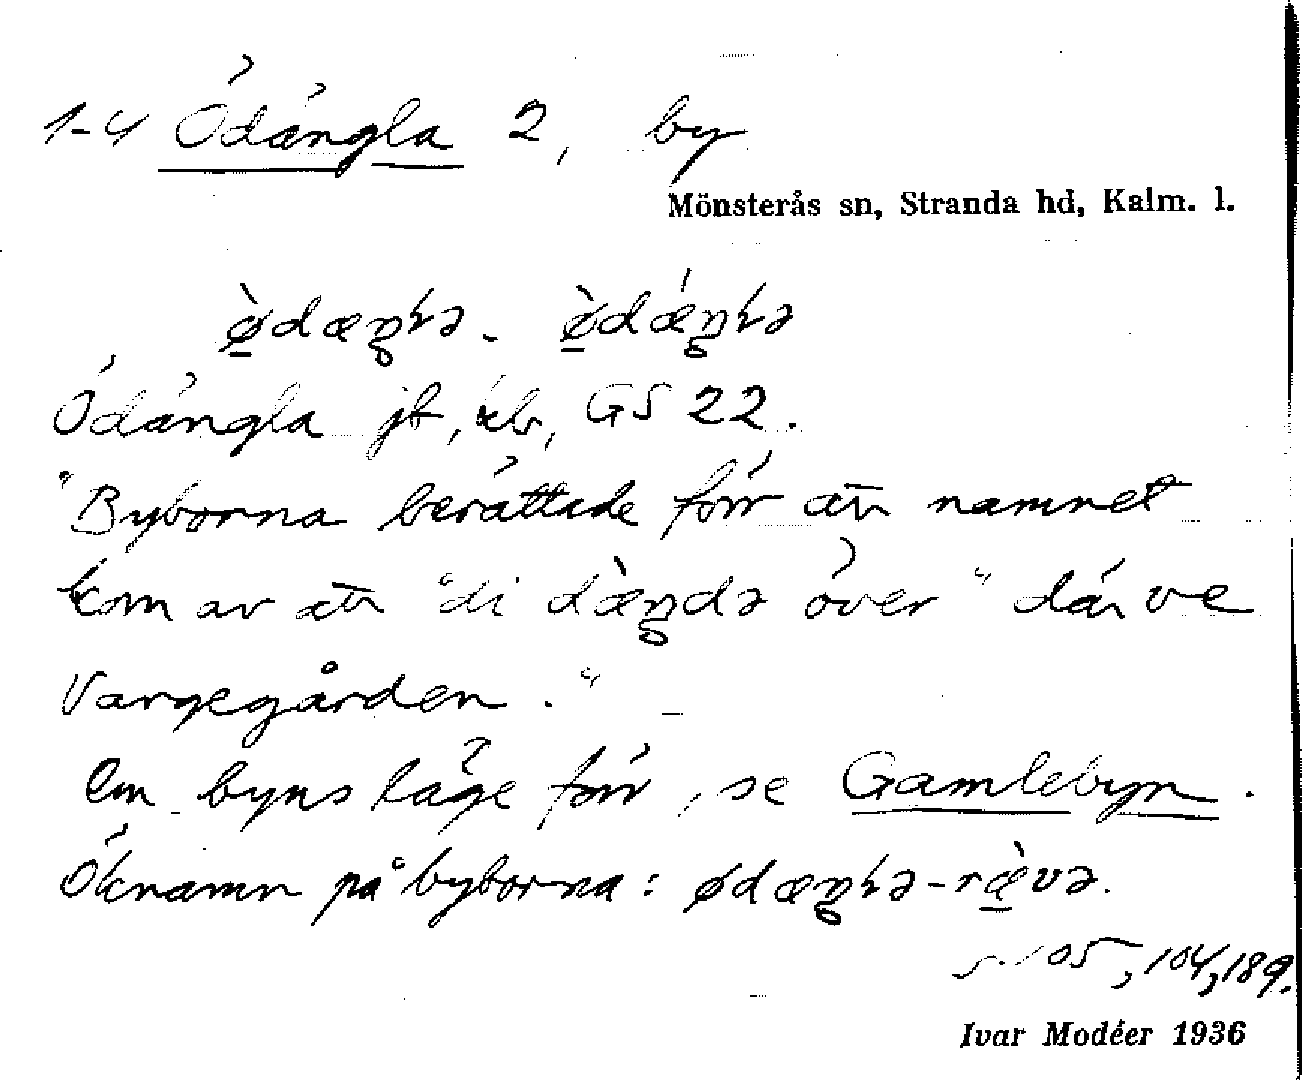 1-4 Ödängla 2, by
Mönsterås sn, Stranda hd, Kalm. l.
ø̀dæŋɬə - ø̀dǽŋɬə
Ödängla jb, kbr, GS 22.
"Byborna berättade förr att namnet
kom av att "di dæ̀ŋdə över" där ve
Vargegården."
Om byns läge förr, se Gamlebyn.
Öknamn på byborna: ødæŋɬə-ræ̀və.
s. 105, 104, 189.
Ivar Modéer 1936